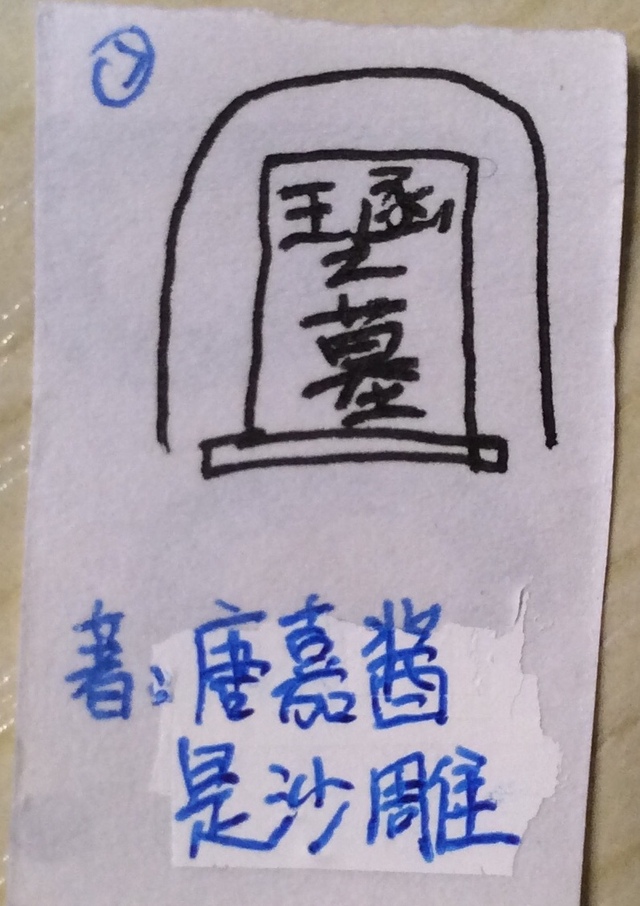 王函
之
墓
著:唐嘉酱
是沙雕